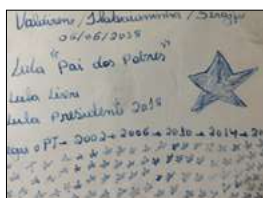 Valdirene / Itabaianinha / Sergipe
06/06/2018
Lula "Pai dos Pobres"
Lula Livre
Lula Presidente 2018
PT → 2002 → 2006 → 2010 → 2014 →